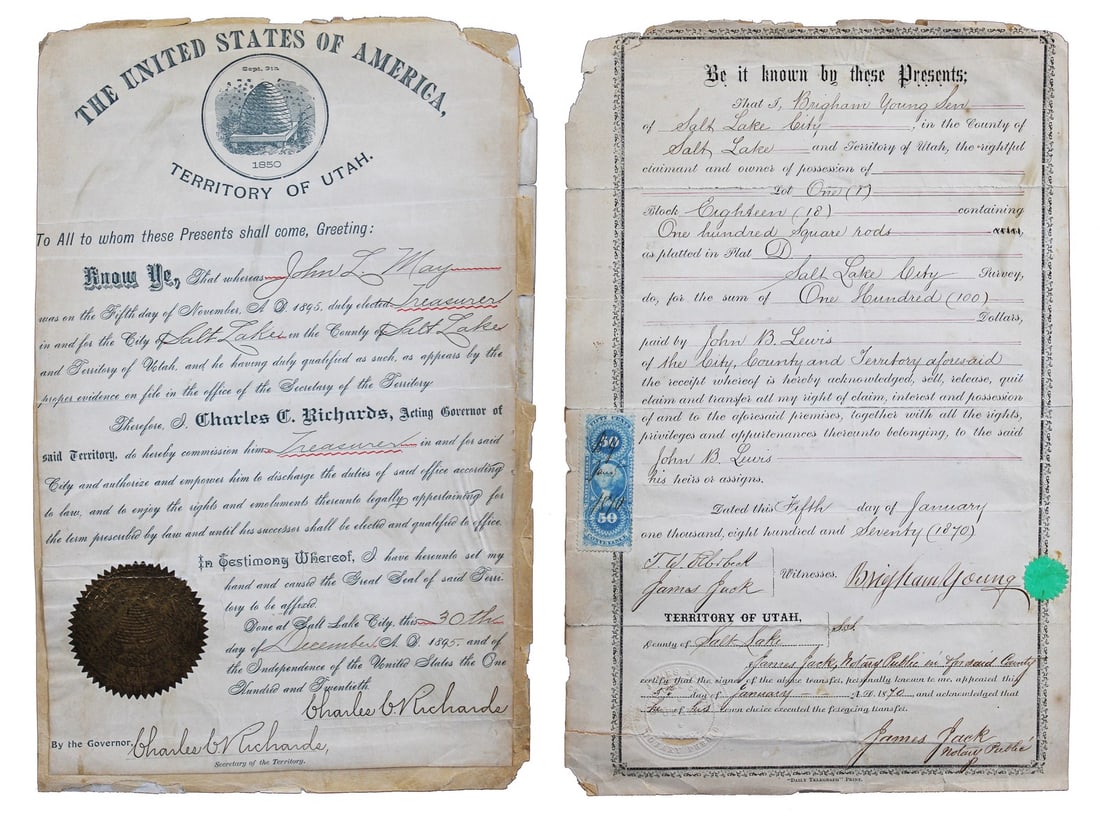 THE UNITED STATES OF AMERICA,
Sept. 9th
1850
TERRITORY OF UTAH.
To All to whom these Presents shall come, Greeting:
Know Ye, That whereas John L. May
was on the Fifth day of November, A. D. 1895, duly elected Treasurer
in and for the City of Salt Lake in the County of Salt Lake
and Territory of Utah, and he having duly qualified as such, as appears by the
proper evidence on file in the office of the Secretary of the Territory:
Therefore, I, Charles C. Richards, Acting Governor of
said Territory, do hereby commission him Treasurer in and for said
City and authorize and empower him to discharge the duties of said office according
to law, and to enjoy the rights and emoluments thereunto legally appertaining for
the term prescribed by law and until his successor shall be elected and qualified to office.
In Testimony Whereof, I have hereunto set my
hand and caused the Great Seal of said Terri-
tory to be affixed.
Done at Salt Lake City, this 30th
day of December, A. D. 1895, and of
the Independence of the United States the One
Hundred and Twentieth.
Charles C Richards
By the Governor, Charles C Richards,
Secretary of the Territory.
Be it known by these Presents;
That I, Brigham Young Sen
of Salt Lake City, in the County of
Salt Lake and Territory of Utah, the rightful
claimant and owner of possession of
Lot One (1)
Block Eighteen (18) containing
One hundred Square rods
as platted in Plat D
Salt Lake City Survey,
do, for the sum of One Hundred (100)
Dollars,
paid by John B. Lewis
of the City, County and Territory aforesaid
the receipt whereof is hereby acknowledged, sell, release, quit
claim and transfer all my right of claim, interest and possession
of and to the aforesaid premises, together with all the rights,
privileges and appurtenances thereunto belonging, to the said
John B. Lewis
his heirs or assigns.
50
1870
50
Dated this Fifth day of January
one thousand, eight hundred and Seventy (1870)
James Jack
Witnesses.
Brigham Young
TERRITORY OF UTAH,
County of Salt Lake
James Jack, Notary Public in & for said County
certify that the signer of the above transfer, personally known to me, appeared this
5th day of January A.D. 1870 and acknowledged that
he of his own choice executed the foregoing transfer.
James Jack
Notary Public
"DAILY TELEGRAPH" PRINT.